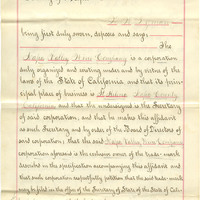 being first duly sworn, deposes and says: The
Napa Valley Wine Company is a corporation
duly organized and existing under and by virtue of the
laws of the State of California, and that its princi-
pal place of business is St. Helena Napa County
California and that the undersigned is the Secretary
of said corporation, and that he makes this affidavit
as such Secretary and by order of the Board of Directors
of said corporation; that the said Napa Valley Wine Company
corporation aforesaid is the owner of the trade-mark
described in the specification accompanying this affidavit and
that such corporation respectfully petition that the said trade-mark
may be filed in the office of the Secretary of State of the State of Cali-